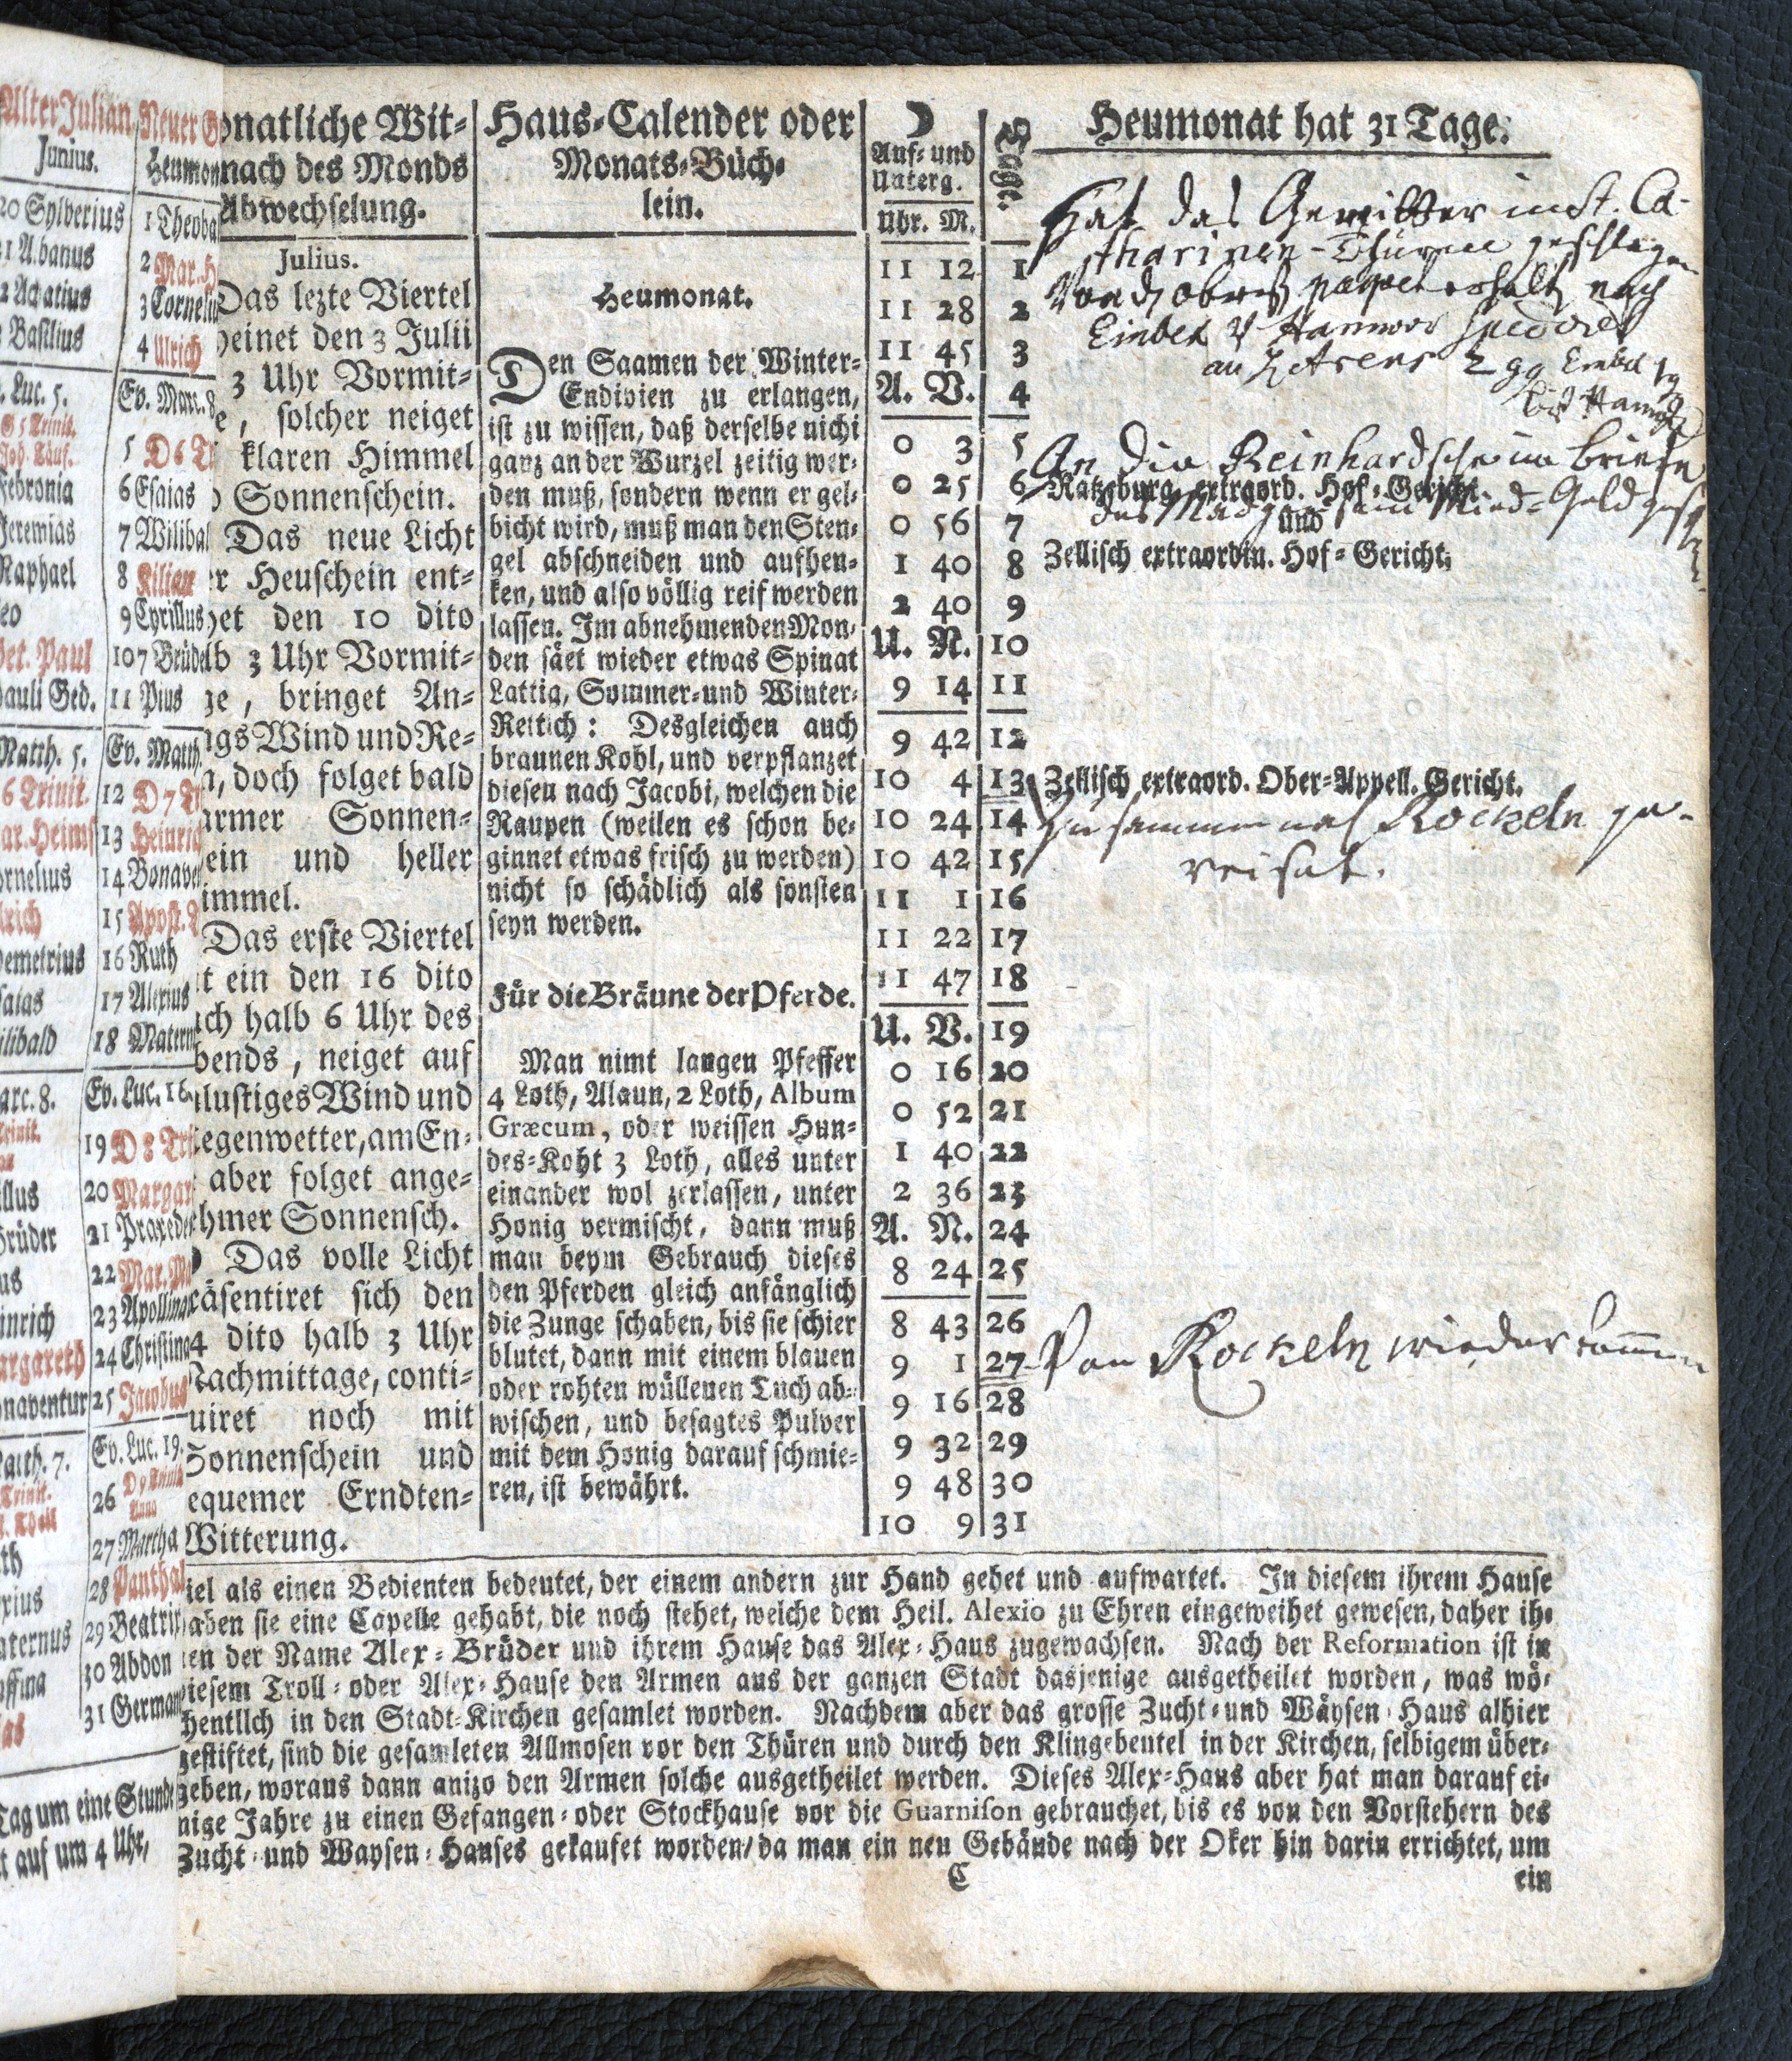 Alter Julian.
Junius.
20 Sylverius
21 Albanus
2 Achatius
Basilius
Luc. 5.
G 5 Trinit.
Joh. Täuf.
Febronia
Jeremias
Raphael
Leo
Pet. Paul
Pauli Ged.
Matth. 5.
6 Trinit.
Mar. Heims
Cornelius
Ulrich
Demetrius
Esaias
Wilibald
Marc. 8.
Trinit.
Brüder
Pius
Heinrich
Margareth
Bonaventur
Matth. 7.
Tag um eine Stunde
auf um 4 Uhr,
Neuer G
Heumon
1 Theoba
2 Mar. H
3 Corneli
4 Ulrich
Ev. Marc. 8
5 D 6 T
6 Esaias
7 Wilibal
8 Kilian
9 Cyrillus
10 7 Brüde
11 Pius
Ev. Matth.
12 D 7 T
13 Heinric
14 Bonaven
15 Apost. T
16 Ruth
17 Alexius
18 Matern
Ev. Luc. 16.
19 D 8 Tri
20 Margar
21 Praxede
22 Mar. Ma
23 Apollina
24 Christina
25 Jacobus
Ev. Luc. 19.
26 D 9 Trinit
Anna
27 Martha
28 Panthal
29 Beatrix
30 Abdon
31 German
onatliche Wit-
nach des Monds
Abwechselung.
Julius.
Das lezte Viertel
heinet den 3 Julii
3 Uhr Vormit-
e, solcher neiget
klaren Himmel
Sonnenschein.
Das neue Licht
er Heuschein ent-
het den 10 dito
lb 3 Uhr Vormit-
ge, bringet An-
ngs Wind und Re-
n, doch folget bald
armer Sonnen-
ein und heller
immel.
Das erste Viertel
t ein den 16 dito
ach halb 6 Uhr des
bends, neiget auf
lustiges Wind und
Regenwetter, am En-
aber folget ange-
hmer Sonnensch.
Das volle Licht
räsentiret sich den
4 dito halb 3 Uhr
Nachmittage, conti-
uiret noch mit
Sonnenschein und
equemer Erndten-
Witterung.
Haus-Calender oder
Monats-Büch-
lein.
Heumonat.
Den Saamen der Winter-
Endivien zu erlangen,
ist zu wissen, daß derselbe nicht
ganz an der Wurzel zeitig wer-
den muß, sondern wenn er gel-
bicht wird, muß man den Sten-
gel abschneiden und aufhen-
ken, und also völlig reif werden
lassen. Im abnehmenden Mon-
den säet wieder etwas Spinat
Lattig, Sommer- und Winter-
Rettich: Desgleichen auch
braunen Kohl, und verpflanzet
diesen nach Jacobi, welchen die
Raupen (weilen es schon be-
ginnet etwas frisch zu werden)
nicht so schädlich als sonsten
seyn werden.
Für die Bräune der Pferde.
Man nimt langen Pfeffer
4 Loth, Alaun, 2 Loth, Album
Græcum, oder weissen Hun-
des-Koht 3 Loth, alles unter
einander wol zerlassen, unter
Honig vermischt, dann muß
man beym Gebrauch dieses
den Pferden gleich anfänglich
die Zunge schaben, bis sie schier
blutet, dann mit einem blauen
oder rohten wüllenen Tuch ab-
wischen, und besagtes Pulver
mit dem Honig darauf schmie-
ren, ist bewährt.
☽
Auf- und
Unterg.
Uhr. M. Tage.
11 12 1
11 28 2
11 45 3
A. V. 4
0 3 5
0 25 6
0 56 7
1 40 8
2 40 9
U. N. 10
9 14 11
9 42 12
10 4 13
10 24 14
10 42 15
11 1 16
11 22 17
11 47 18
U. V. 19
0 16 20
0 52 21
1 40 22
2 36 23
A. N. 24
8 24 25
8 43 26
9 1 27
9 16 28
9 32 29
9 48 30
10 9 31
Heumonat hat 31 Tage.
Hat das Gewitter in St. Ca-
tharinen-Thurm geschlagen
nach
Einbek Hannover
an 2 gg Einbek
An die Reinhardsche im briefe
Ratzeburg. extraord. Hof-Gericht.
Mied-Geld
und
Zellisch extraordin. Hof-Gericht.
Zellisch extraord. Ober-Appell. Gericht.
Zusammen nach Rockeln ge-
reiset.
Von Rockeln wieder kommen
iel als einen Bedienten bedeutet, der einem andern zur Hand gehet und aufwartet. In diesem ihrem Hause
aben sie eine Capelle gehabt, die noch stehet, welche dem Heil. Alexio zu Ehren eingeweihet gewesen, daher ih-
en der Name Alex-Brüder und ihrem Hause das Alex-Haus zugewachsen. Nach der Reformation ist in
iesem Troll- oder Alex-Hause den Armen aus der ganzen Stadt dasjenige ausgetheilet worden, was wö-
hentlich in den Stadt-Kirchen gesamlet worden. Nachdem aber das grosse Zucht- und Wäysen-Haus alhier
gestiftet, sind die gesamleten Allmosen vor den Thüren und durch den Klingebeutel in der Kirchen, selbigem über-
geben, woraus dann anizo den Armen solche ausgetheilet werden. Dieses Alex-Haus aber hat man darauf ei-
nige Jahre zu einen Gefangen- oder Stockhause vor die Guarnison gebrauchet, bis es von den Vorstehern des
Zucht- und Waysen-Hauses gekaufet worden/ da man ein neu Gebäude nach der Oker hin darin errichtet, um
C ein